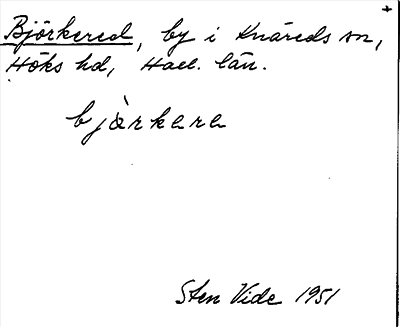 +
Björkered, by i Knäreds sn,
Höks hd, Hall. län.
bjàrkera
Sten Vide 1951